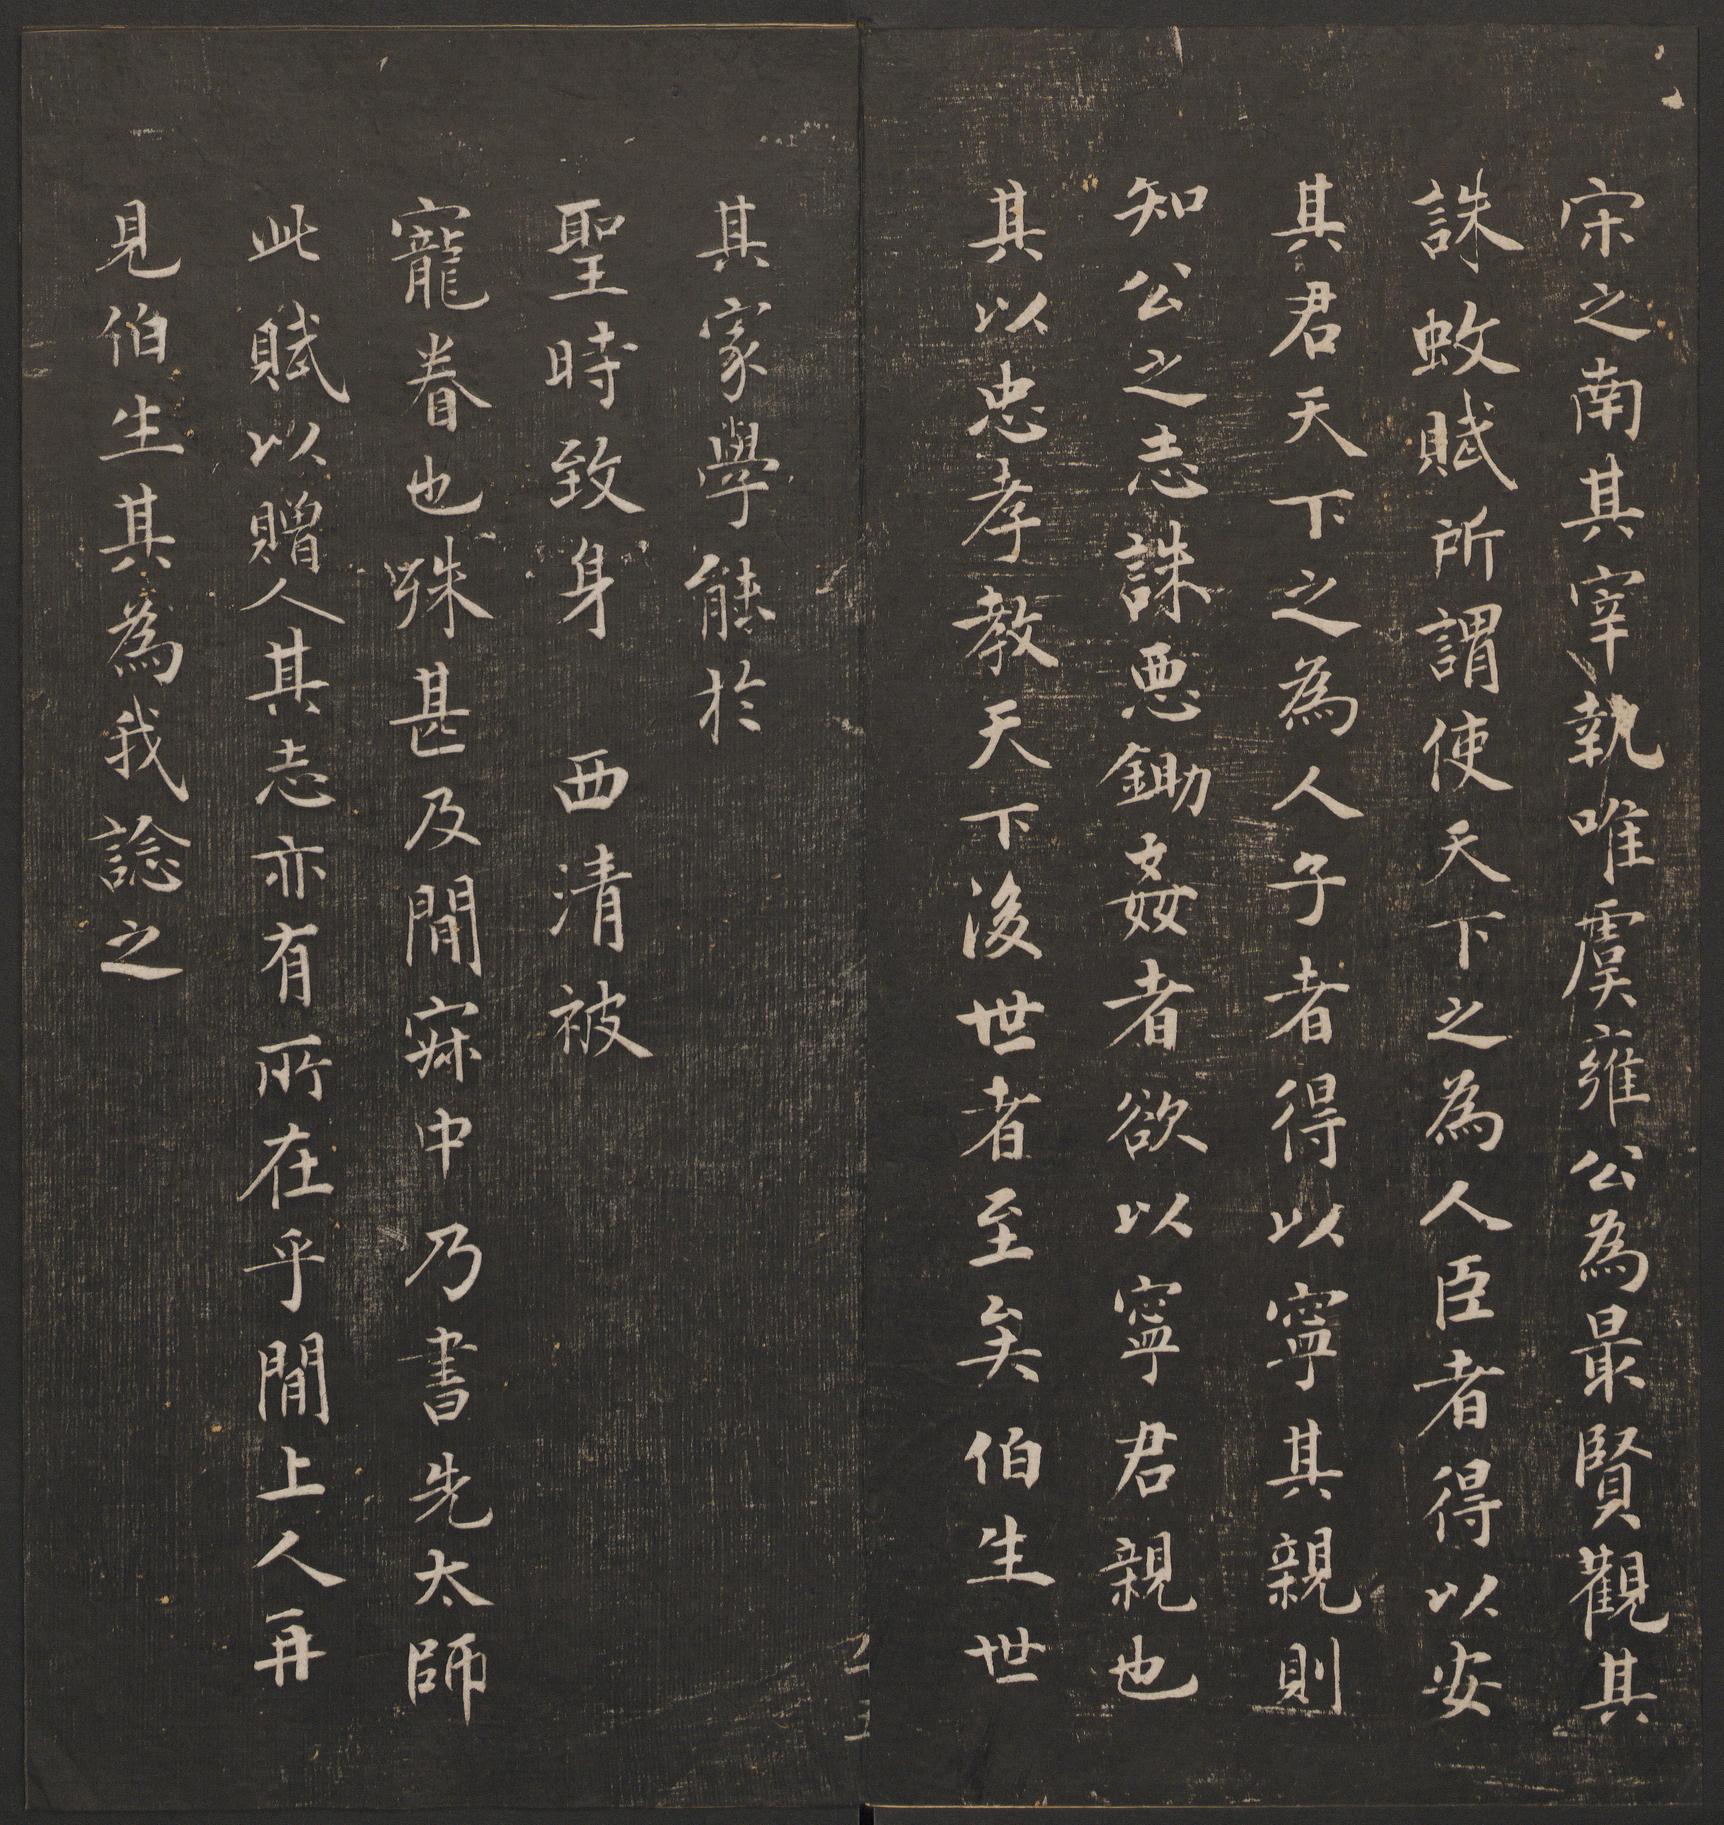 宋之南其宰執唯虞雍公為最賢觀其
誅蚊賦所謂使天下之為人臣者得以安
其君天下之為人子者得以寧其親則
知公之志誅惡鋤姦者欲以寧君親也
其以忠孝教天下後世者至矣伯生世
其家學能於
聖時致身　西清被
寵眷也殊甚及閒寂中乃書先太師
此賦以贈人其志亦有所在乎閒上人再
見伯生其為我諗之